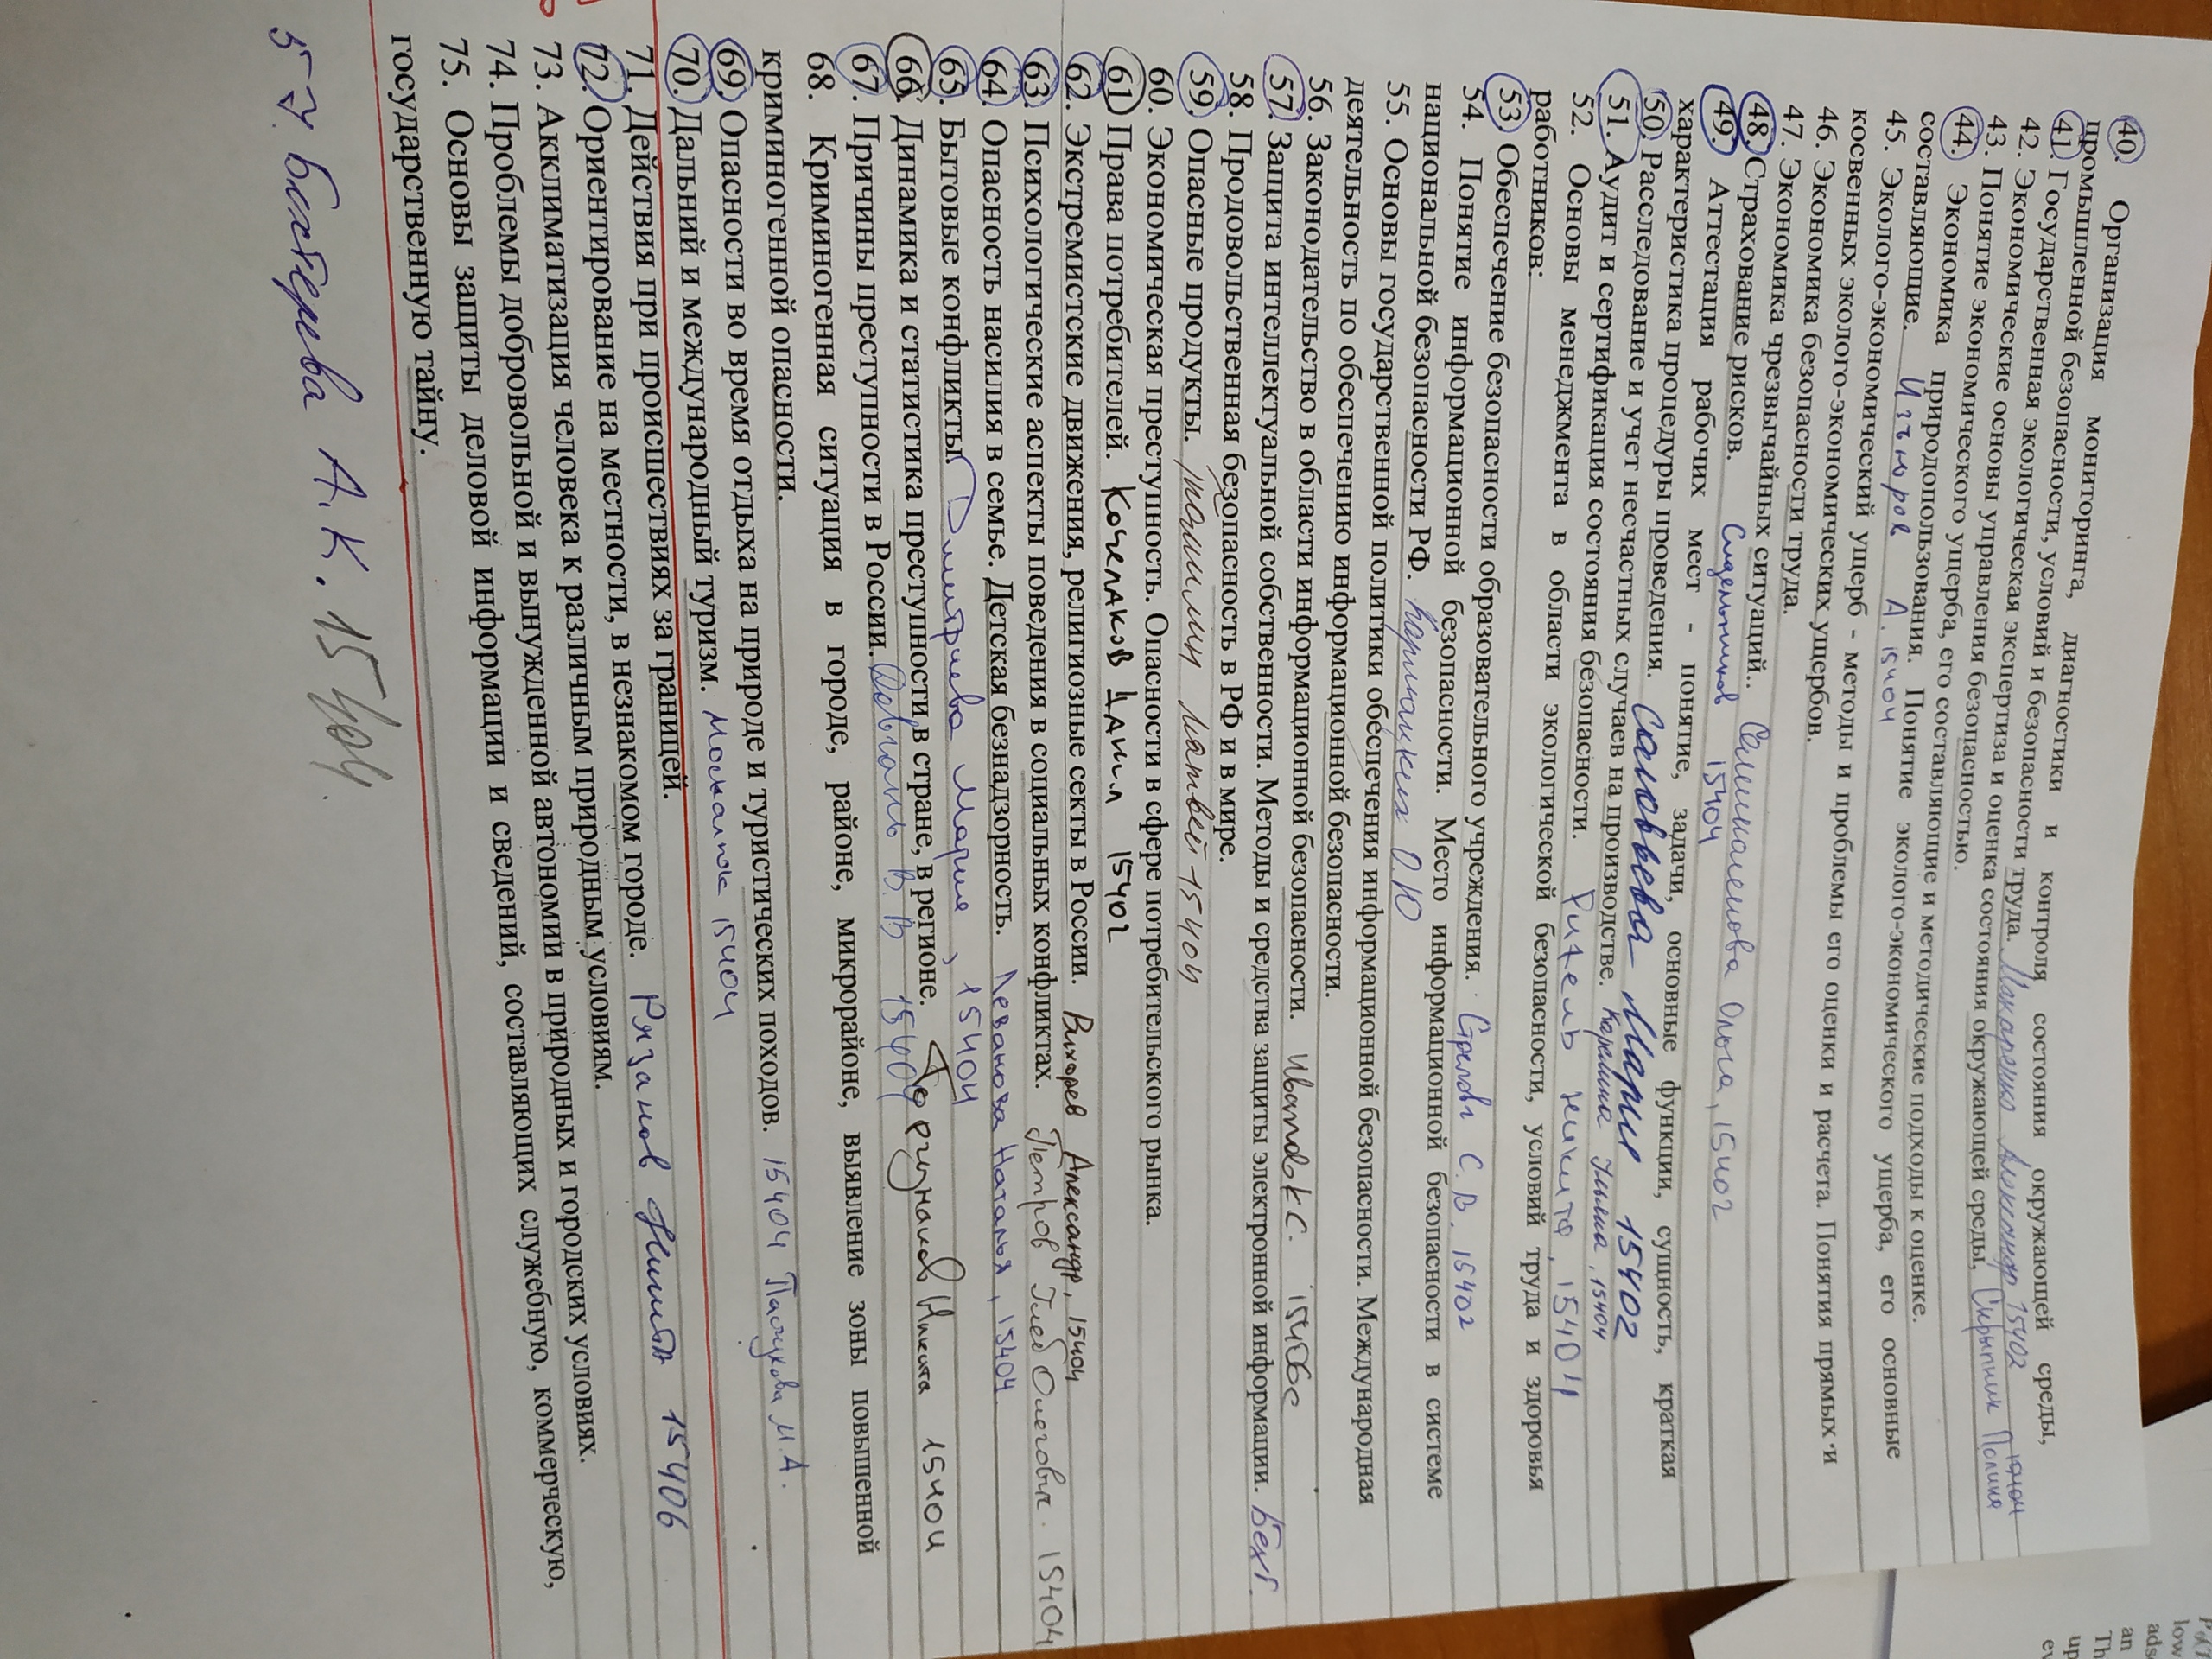 40. Организация мониторинга, диагностики и контроля состояния окружающей среды,
промышленной безопасности, условий и безопасности труда. Макаренко Александр 15402
41. Государственная экологическая экспертиза и оценка состояния окружающей среды, Скрыпник Полина 15404
42. Экономические основы управления безопасностью.
43. Понятие экономического ущерба, его составляющие и методические подходы к оценке.
44. Экономика природопользования. Понятие эколого-экономического ущерба, его основные
составляющие. Изъюров А. 15404
45. Эколого-экономический ущерб - методы и проблемы его оценки и расчета. Понятия прямых и
косвенных эколого-экономических ущербов.
46. Экономика безопасности труда.
47. Экономика чрезвычайных ситуаций.. Ольга, 15402
48. Страхование рисков. Сидельников 15404
49. Аттестация рабочих мест - понятие, задачи, основные функции, сущность, краткая
характеристика процедуры проведения. Соловьева Мария 15402
50. Расследование и учет несчастных случаев на производстве. Карелина Ульяна, 15404
51. Аудит и сертификация состояния безопасности. Никита, 15404
52. Основы менеджмента в области экологической безопасности, условий труда и здоровья
работников:
53. Обеспечение безопасности образовательного учреждения. С. В. 15402
54. Понятие информационной безопасности. Место информационной безопасности в системе
национальной безопасности РФ. О.Ю
55. Основы государственной политики обеспечения информационной безопасности. Международная
деятельность по обеспечению информационной безопасности.
56. Законодательство в области информационной безопасности. Иванов К С. 15406с
57. Защита интеллектуальной собственности. Методы и средства защиты электронной информации. Бехт.
58. Продовольственная безопасность в РФ и в мире.
59. Опасные продукты. Томилин Матвей 15404
60. Экономическая преступность. Опасности в сфере потребительского рынка.
61 Права потребителей. Кочелаков Данил 15402
62. Экстремистские движения, религиозные секты в России. Вихорев Александр, 15404
63. Психологические аспекты поведения в социальных конфликтах. Петров Глеб Олегович. 15404
64. Опасность насилия в семье. Детская безнадзорность. Леванова Наталья, 15404
65. Бытовые конфликты. Дмитриева Мария, 15404
66. Динамика и статистика преступности в стране, в регионе. Торгунаков Никита 15404
67. Причины преступности в России. Довгань В. В 15404
68. Криминогенная ситуация в городе, районе, микрорайоне, выявление зоны повышенной
криминогенной опасности.
69. Опасности во время отдыха на природе и туристических походов. 15404 М. А.
70. Дальний и международный туризм. Москалюк 15404
71. Действия при происшествиях за границей.
72. Ориентирование на местности, в незнакомом городе. Рязанов Никита 15406
73. Акклиматизация человека к различным природным условиям.
74. Проблемы добровольной и вынужденной автономии в природных и городских условиях.
75. Основы защиты деловой информации и сведений, составляющих служебную, коммерческую,
государственную тайну.
57. Бехтерева А. К. 15404.